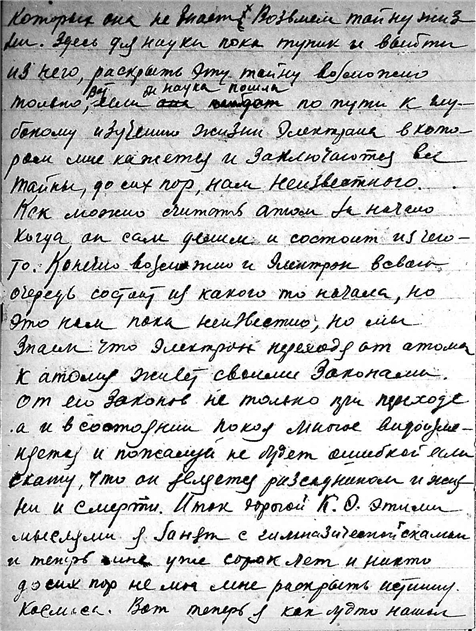 которых она не знает. Возьмем тайну жиз
ни. Здесь для науки пока тупик и выйти
из него, раскрыть эту тайну возможно
только, если бы наука пошла по пути к глу-
бокому изучению жизни электрона в кото-
ром мне кажется и заключаются все
тайны, до сих пор, нам неизвестного.
Как можно считать атом за начало
когда он сам делим и состоит из чего-
то. Конечно возможно и электрон в свою
очередь состоит из какого то начала, но
это нам пока неизвестно, но мы
знаем что электрон переходя от атома
к атому живет своими законами.
От его законов не только при переходе
а и в состоянии покоя многое видоизме-
няется и пожалуй не будет ошибкой если
скажу, что он является рассадником и жиз
ни и смерти. Итак дорогой К.Э. этими
мыслями я занят с гимназической скамьи
и теперь мне уже сорок лет и никто
до сих пор не мог мне раскрыть истину
космоса. Вот теперь я как будто нашел